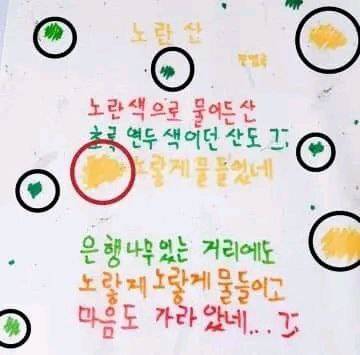 노란 산
노란색으로 물이든산
초록 연두 색이던 산도
노랗게 물들었네
은행나무있는 거리에도
노랗게 노랗게 물들이고
마음도 가라 았네...